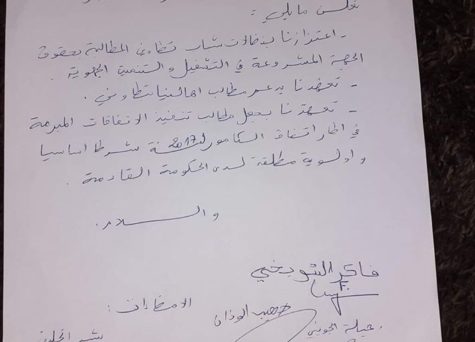 نعلن ما يلي:
- اعتزازنا بنضالات شباب تطاوين المطالبة بحقوق
الجهة المشروعة في التشغيل والتنمية الجهوية.
- تعهدنا بدعم مطالب اهالينا بتطاوين.
- تعهدنا بجعل مطالب تنفيذ الاتفاقات المبرمة
في اطار اتفاق الكامور لسنة 2017 شرطا اساسيا
واولوية مطلقة لدى الحكومة القادمة.
والسلام.
فاكر الشويخي
الامضاءات:
حبيب الوذان
جميلة الجويني